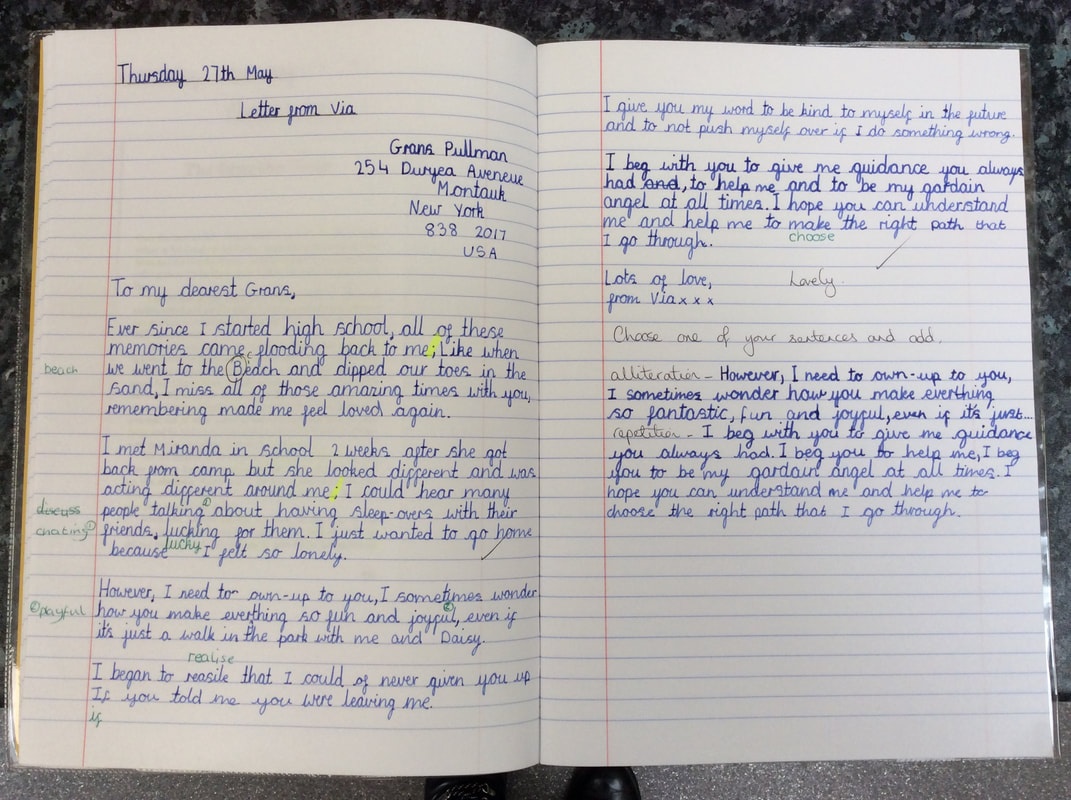 Thursday 27th May
Letter from Via
Grans Pullman
254 Duryea Aveneue
Montauk
New York
838 2017
USA
To my dearest Grans,
Ever since I started high school, all of these
memories came flooding back to me; Like when
beach we went to the Beach and dipped our toes in the
sand, I miss all of those amazing times with you,
remembering made me feel loved again.
I met Miranda in school 2 weeks after she got
back from camp but she looked different and was
acting different around me; I could hear many
discuss people talking about having sleep-overs with their
chating friends, lucking for them. I just wanted to go home
because lucky I felt so lonely.
However, I need to own-up to you, I sometimes wonder
playful how you make everthing so fun and joyful, even if
it's just a walk in the park with me and Daisy.
realise
I began to reasile that I could of never given you up
If you told me you were leaving me.
if
I give you my word to be kind to myself in the future
and to not push myself over if I do something wrong.
I beg with you to give me guidance you always
had and, to help me and to be my gardain
angel at all times. I hope you can understand
me and help me to make the right path that
choose
I go through.
Lots of love, Lovely.
from Via x x x
Choose one of your sentences and add.
alliteration - However, I need to own-up to you,
I sometimes wonder how you make everthing
so fantastic, fun and joyful, even if it's just...
repetition - I beg with you to give me guidance
you always had. I beg you to help me, I beg
you to be my gardain angel at all times. I
hope you can understand me and help me to
choose the right path that I go through.